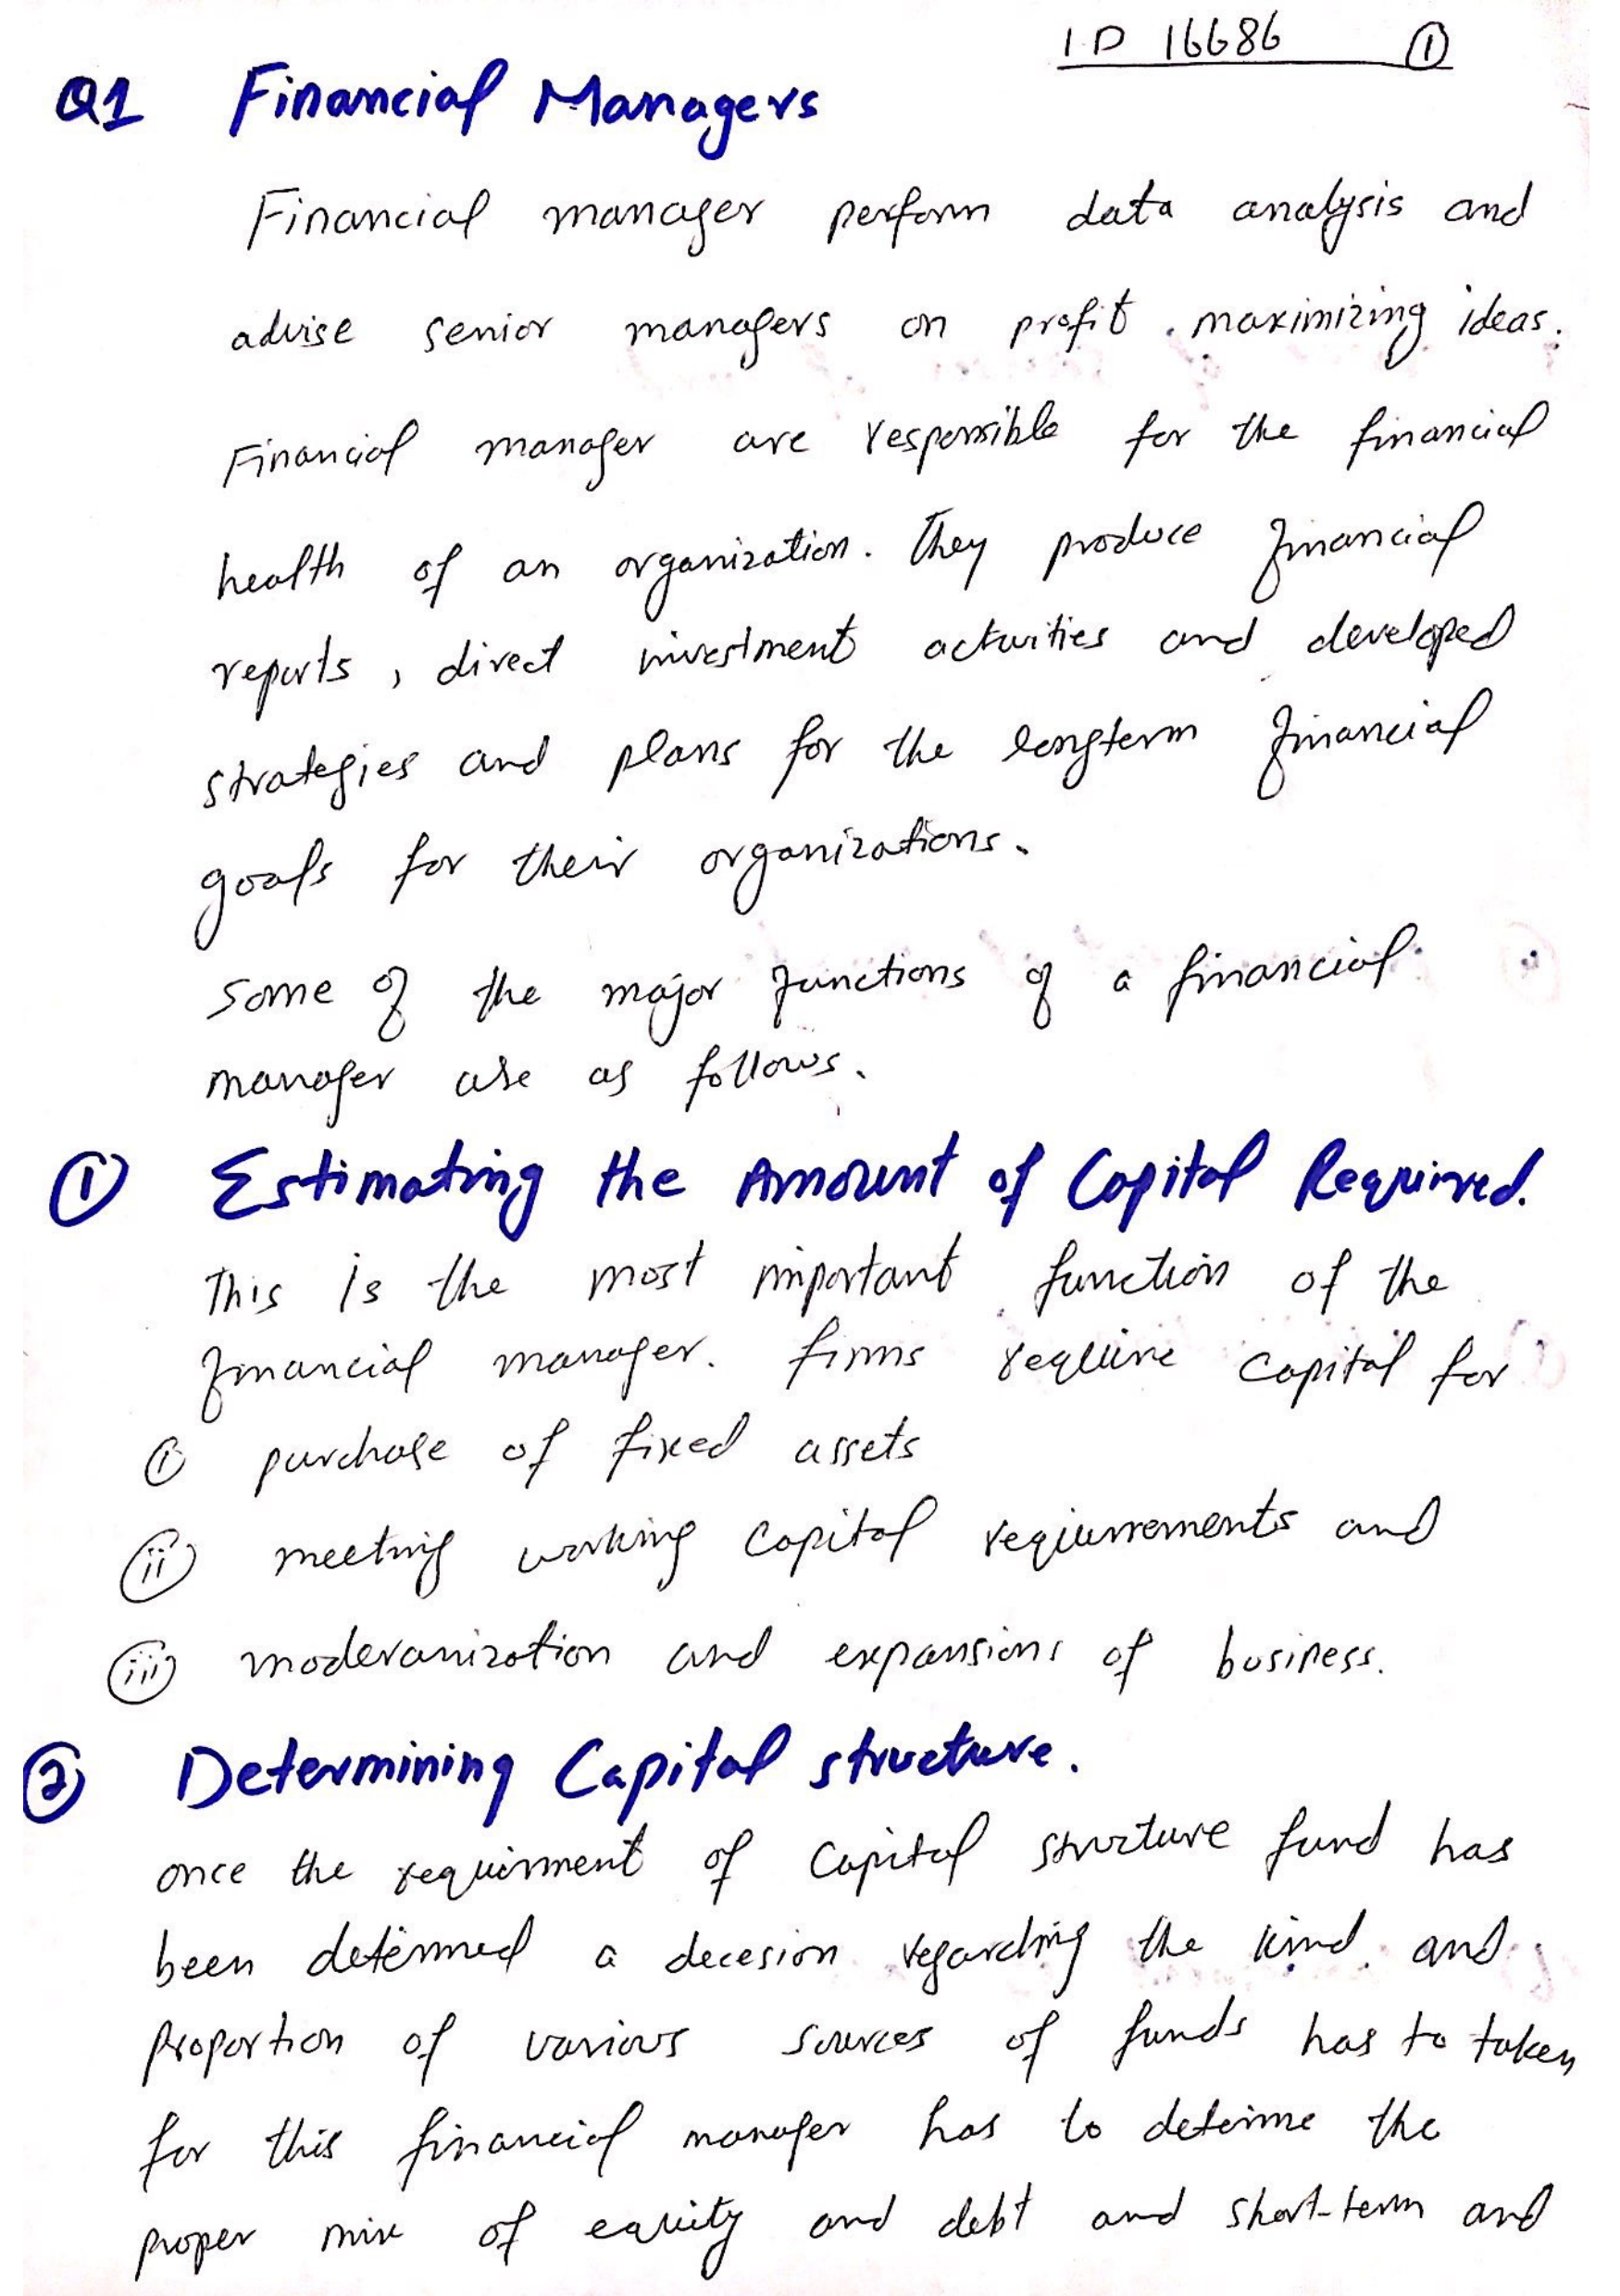 ID 16686 ①
Q1 Financial Managers
Financial manager perform data analysis and
advise senior managers on profit maximizing ideas.
Financial manager are responsible for the financial
health of an organization. They produce financial
reports, direct investment activities and developed
strategies and plans for the longterm financial
goals for their organizations.
Some of the major functions of a financial
manager are as follows.
① Estimating the Amount of Capital Required.
This is the most important function of the
financial manager. firms require capital for
ⓘ purchase of fixed assets
(ii) meeting working capital requirements and
(iii) moderanization and expansions of business.
② Determining Capital structure.
once the requirment of Capital structure fund has
been determed a decesion regarding the kind and
proportion of various sources of funds has to taken
for this financial manager has to determe the
proper mix of equity and debt and short-term and